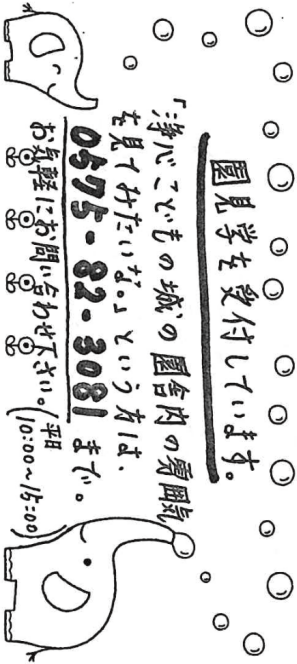 園見学を受付しています。
「浄心こどもの城の園舎内の雰囲気
を見てみたいな。」という方は、
0575-82-3081 まで。
お気軽にお問い合わせ下さい。(平日
10:00〜15:00)